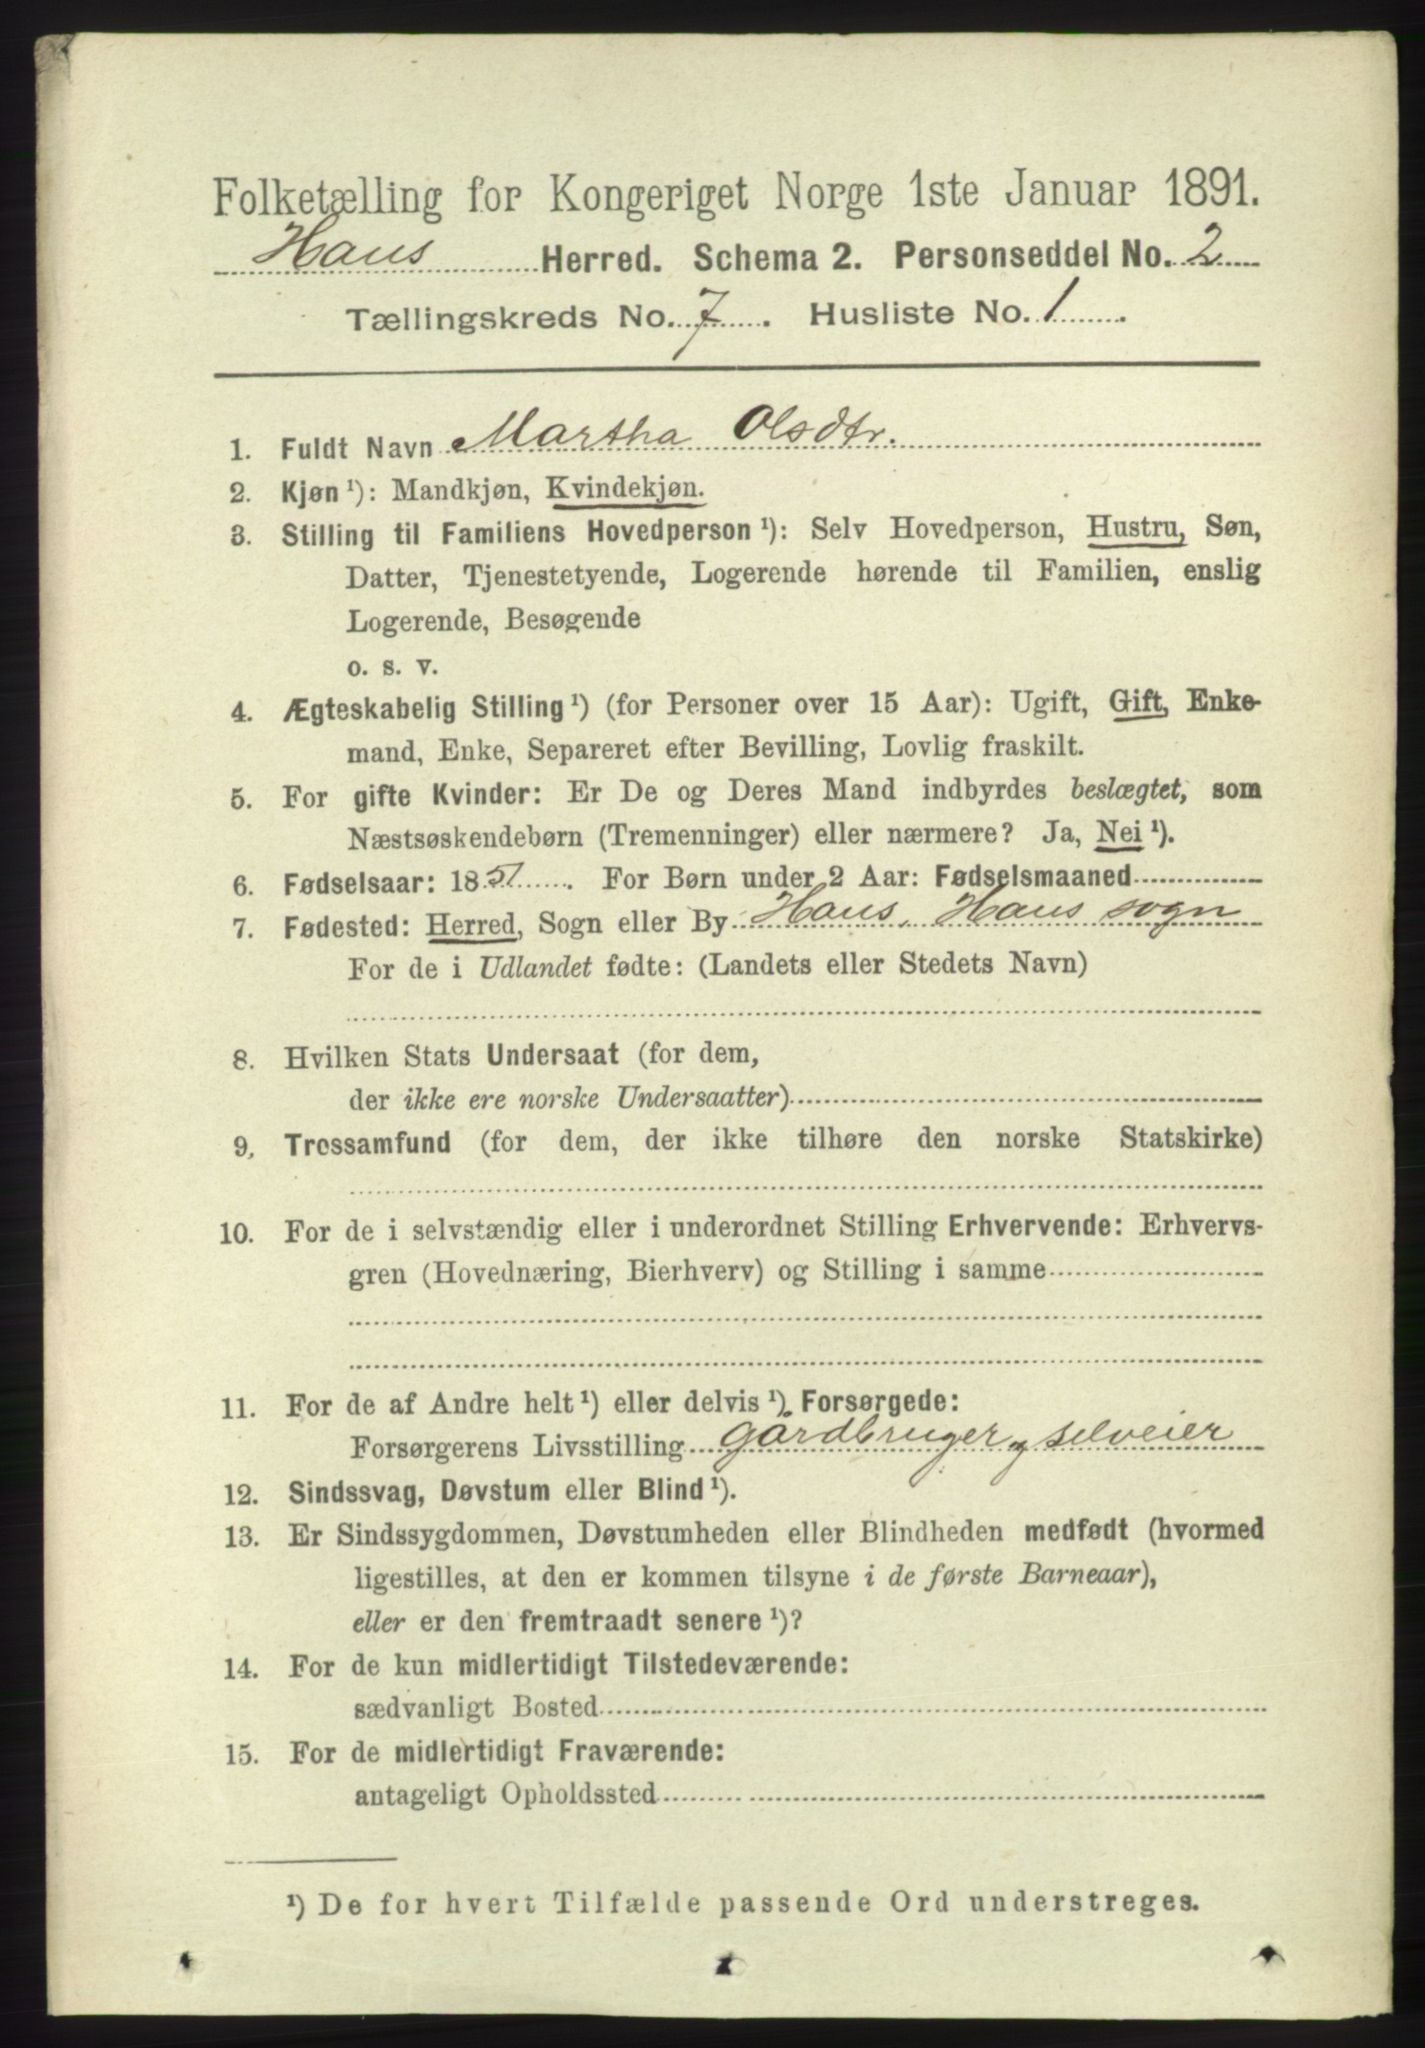 Folketælling for Kongeriget Norge 1ste Januar 1891.
Haus Herred. Schema 2. Personseddel No. 2
Tællingskreds No. 7. Husliste No. 1.
1. Fuldt Navn Martha Olsdtr.
2. Kjøn ¹): Mandkjøn, Kvindekjøn.
3. Stilling til Familiens Hovedperson ¹): Selv Hovedperson, Hustru, Søn,
Datter, Tjenestetyende, Logerende hørende til Familien, enslig
Logerende, Besøgende
o. s. v.
4. Ægteskabelig Stilling ¹) (for Personer over 15 Aar): Ugift, Gift, Enke-
mand, Enke, Separeret efter Bevilling, Lovlig fraskilt.
5. For gifte Kvinder: Er De og Deres Mand indbyrdes beslægtet, som
Næstsøskendebørn (Tremenninger) eller nærmere? Ja, Nei ¹).
6. Fødselsaar: 1851. For Børn under 2 Aar: Fødselsmaaned
7. Fødested: Herred, Sogn eller By Haus, Haus sogn
For de i Udlandet fødte: (Landets eller Stedets Navn)
8. Hvilken Stats Undersaat (for dem,
der ikke ere norske Undersaatter)
9. Trossamfund (for dem, der ikke tilhøre den norske Statskirke)
10. For de i selvstændig eller i underordnet Stilling Erhvervende: Erhvervs-
gren (Hovednæring, Bierhverv) og Stilling i samme
11. For de af Andre helt ¹) eller delvis ¹) Forsørgede:
Forsørgerens Livsstilling gårdbruger og selveier
12. Sindssvag, Døvstum eller Blind ¹).
13. Er Sindssygdommen, Døvstumheden eller Blindheden medfødt (hvormed
ligestilles, at den er kommen tilsyne i de første Barneaar),
eller er den fremtraadt senere ¹)?
14. For de kun midlertidigt Tilstedeværende:
sædvanligt Bosted
15. For de midlertidigt Fraværende:
antageligt Opholdssted
¹) De for hvert Tilfælde passende Ord understreges.